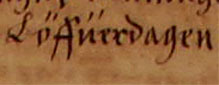 Löffüerdagen